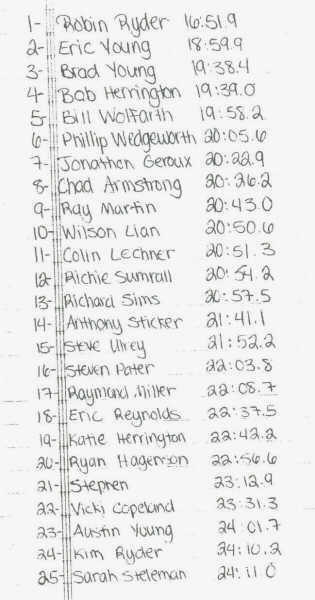 1- Robin Ryder 16:51.9
2- Eric Young 18:59.9
3- Brad Young 19:38.4
4- Bob Herrington 19:39.0
5- Bill Wolfarth 19:58.2
6- Phillip Wedgeworth 20:05.6
7- Jonathon Geroux 20:22.9
8- Chad Armstrong 20:26.2
9- Ray Martin 20:43.0
10- Wilson Lian 20:50.6
11- Colin Lechner 20:51.3
12- Richie Sumrall 20:54.2
13- Richard Sims 20:57.5
14- Anthony Sticker 21:41.1
15- Steve Ulrey 21:52.2
16- Steven Pater 22:03.8
17- Raymond Miller 22:08.7
18- Eric Reynolds 22:37.5
19- Katie Herrington 22:42.2
20- Ryan Hagerson 22:56.6
21- Stephen 23:12.9
22- Vicki Copeland 23:31.3
23- Austin Young 24:01.7
24- Kim Ryder 24:10.2
25- Sarah Steleman 24:11.0